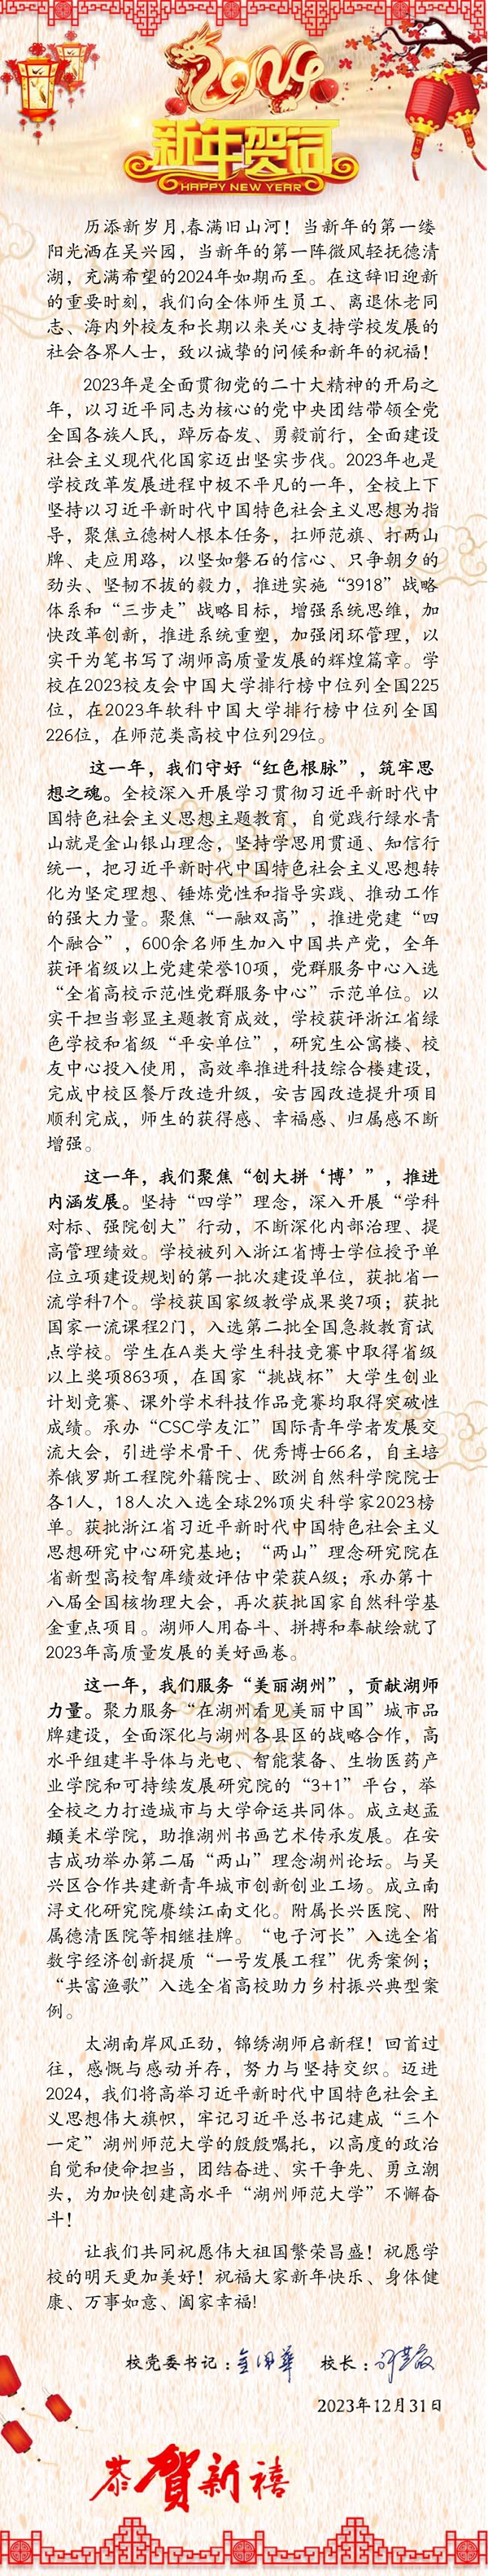 2024
新年贺词
HAPPY NEW YEAR
历添新岁月,春满旧山河！当新年的第一缕
阳光洒在吴兴园，当新年的第一阵微风轻抚德清
湖，充满希望的2024年如期而至。在这辞旧迎新
的重要时刻，我们向全体师生员工、离退休老同
志、海内外校友和长期以来关心支持学校发展的
社会各界人士，致以诚挚的问候和新年的祝福！
2023年是全面贯彻党的二十大精神的开局之
年，以习近平同志为核心的党中央团结带领全党
全国各族人民，踔厉奋发、勇毅前行，全面建设
社会主义现代化国家迈出坚实步伐。2023年也是
学校改革发展进程中极不平凡的一年，全校上下
坚持以习近平新时代中国特色社会主义思想为指
导，聚焦立德树人根本任务，扛师范旗、打两山
牌、走应用路，以坚如磐石的信心、只争朝夕的
劲头、坚韧不拔的毅力，推进实施“3918”战略
体系和“三步走”战略目标，增强系统思维，加
快改革创新，推进系统重塑，加强闭环管理，以
实干为笔书写了湖师高质量发展的辉煌篇章。学
校在2023校友会中国大学排行榜中位列全国225
位，在2023年软科中国大学排行榜中位列全国
226位，在师范类高校中位列29位。
这一年，我们守好“红色根脉”，筑牢思
想之魂。全校深入开展学习贯彻习近平新时代中
国特色社会主义思想主题教育，自觉践行绿水青
山就是金山银山理念，坚持学思用贯通、知信行
统一，把习近平新时代中国特色社会主义思想转
化为坚定理想、锤炼党性和指导实践、推动工作
的强大力量。聚焦“一融双高”，推进党建“四
个融合”，600余名师生加入中国共产党，全年
获评省级以上党建荣誉10项，党群服务中心入选
“全省高校示范性党群服务中心”示范单位。以
实干担当彰显主题教育成效，学校获评浙江省绿
色学校和省级“平安单位”，研究生公寓楼、校
友中心投入使用，高效率推进科技综合楼建设，
完成中校区餐厅改造升级，安吉园改造提升项目
顺利完成，师生的获得感、幸福感、归属感不断
增强。
这一年，我们聚焦“创大拼‘博’”，推进
内涵发展。坚持“四学”理念，深入开展“学科
对标、强院创大”行动，不断深化内部治理、提
高管理绩效。学校被列入浙江省博士学位授予单
位立项建设规划的第一批次建设单位，获批省一
流学科7个。学校获国家级教学成果奖7项；获批
国家一流课程2门，入选第二批全国急救教育试
点学校。学生在A类大学生科技竞赛中取得省级
以上奖项863项，在国家“挑战杯”大学生创业
计划竞赛、课外学术科技作品竞赛均取得突破性
成绩。承办“CSC学友汇”国际青年学者发展交
流大会，引进学术骨干、优秀博士66名，自主培
养俄罗斯工程院外籍院士、欧洲自然科学院院士
各1人，18人次入选全球2%顶尖科学家2023榜
单。获批浙江省习近平新时代中国特色社会主义
思想研究中心研究基地；“两山”理念研究院在
省新型高校智库绩效评估中荣获A级；承办第十
八届全国核物理大会，再次获批国家自然科学基
金重点项目。湖师人用奋斗、拼搏和奉献绘就了
2023年高质量发展的美好画卷。
这一年，我们服务“美丽湖州”，贡献湖师
力量。聚力服务“在湖州看见美丽中国”城市品
牌建设，全面深化与湖州各县区的战略合作，高
水平组建半导体与光电、智能装备、生物医药产
业学院和可持续发展研究院的“3+1”平台，举
全校之力打造城市与大学命运共同体。成立赵孟
頫美术学院，助推湖州书画艺术传承发展。在安
吉成功举办第二届“两山”理念湖州论坛。与吴
兴区合作共建新青年城市创新创业工场。成立南
浔文化研究院赓续江南文化。附属长兴医院、附
属德清医院等相继挂牌。“电子河长”入选全省
数字经济创新提质“一号发展工程”优秀案例；
“共富渔歌”入选全省高校助力乡村振兴典型案
例。
太湖南岸风正劲，锦绣湖师启新程！回首过
往，感慨与感动并存，努力与坚持交织。迈进
2024，我们将高举习近平新时代中国特色社会主
义思想伟大旗帜，牢记习近平总书记建成“三个
一定”湖州师范大学的殷殷嘱托，以高度的政治
自觉和使命担当，团结奋进、实干争先、勇立潮
头，为加快创建高水平“湖州师范大学”不懈奋
斗！
让我们共同祝愿伟大祖国繁荣昌盛！祝愿学
校的明天更加美好！祝福大家新年快乐、身体健
康、万事如意、阖家幸福!
校党委书记：金佩华 校长：
2023年12月31日
恭贺新禧